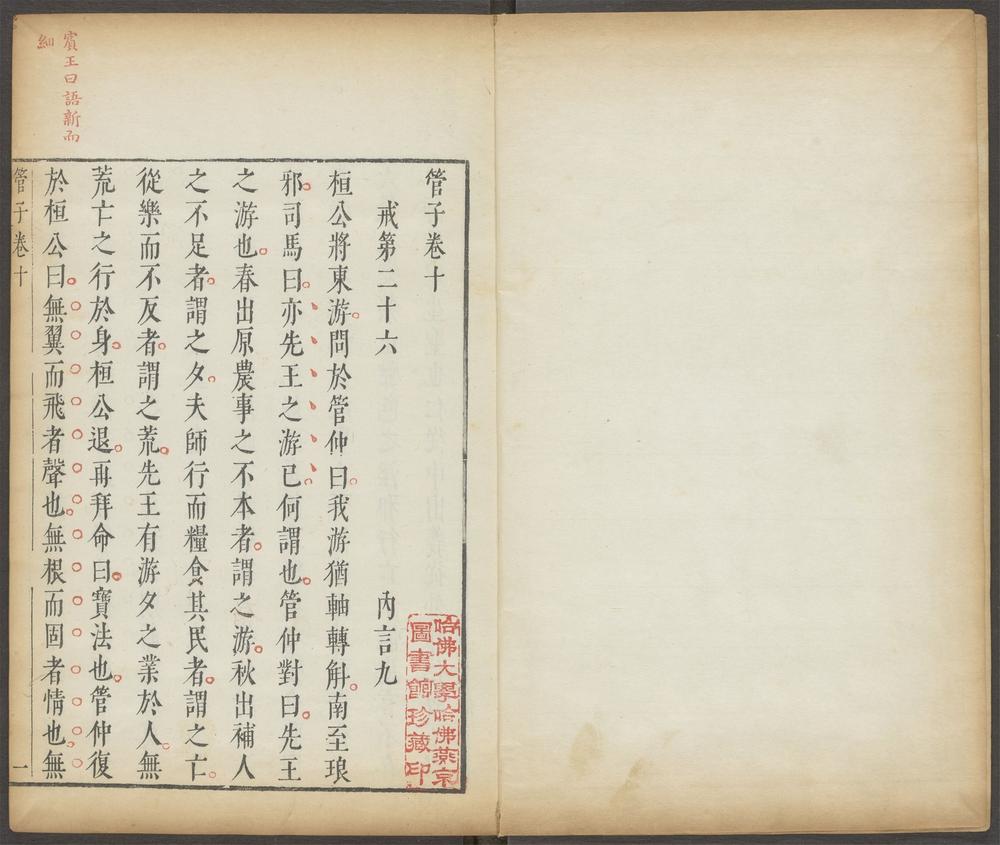 管子卷十
戒第二十六 內言九
桓公將東游問於管仲曰我游猶軸轉斛南至琅
邪司馬曰亦先王之游已何謂也管仲對曰先王
之游也春出原農事之不本者謂之游秋出補人
之不足者謂之夕夫師行而糧食其民者謂之亡
從樂而不反者謂之荒先王有游夕之業於人無
荒亡之行於身桓公退再拜命曰寶法也管仲復
於桓公曰無翼而飛者聲也無根而固者情也無
管子卷十 一
賓王曰語新而
細
哈佛大學哈佛燕京
圖書館珍藏印